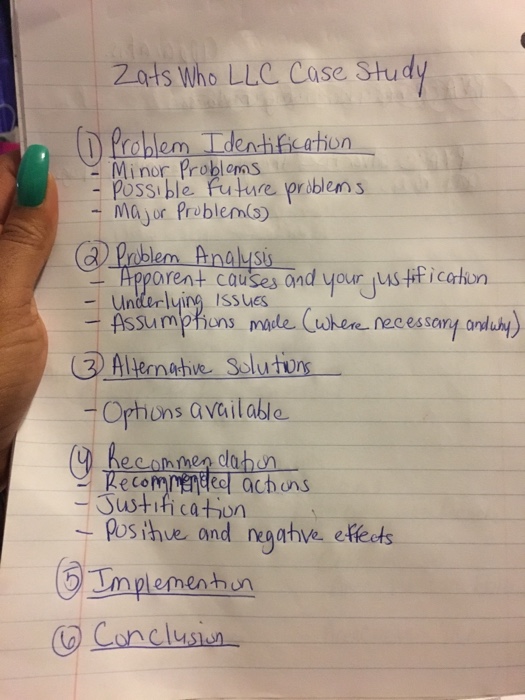 Zats Who LLC Case Study
① Problem Identification
- Minor Problems
- Possible Future problems
- Major Problem(s)
② Problem Analysis
- Apparent causes and your justification
- Underlying Issues
- Assumptions made (where necessary and why)
③ Alternative Solutions
- Options available
④ Recommendation
- Recommended actions
- Justification
- Positive and negative effects
⑤ Implemention
⑥ Conclusion